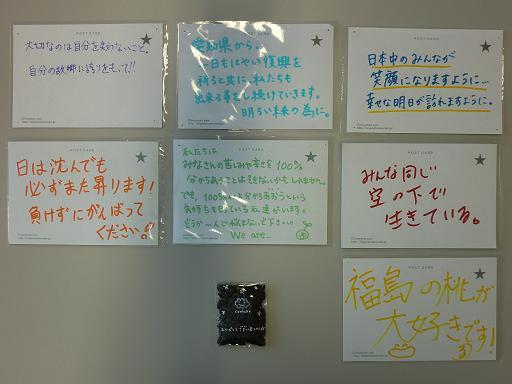 POST CARD
大切なのは自分を失わないこと。
自分の故郷に誇りをもって!!
POST CARD
愛知県から。
一日もはやい復興を
祈ると共に、私たちも
出来る事をし続けていきます。
明るい未来の為に。
POST CARD
日本中のみんなが
笑顔になりますように…
幸せな明日が訪れますように。
POST CARD
日は沈んでも
必ずまた昇ります!
負けずにがんばって
ください。
POST CARD
私たちは
みなさんの苦しみや辛さを100%
分かちあうことはできないかもしれません。
でも、100%
We are
POST CARD
みんな同じ
空の下で
生きている。
POST CARD
福島の桃が
大好きです!